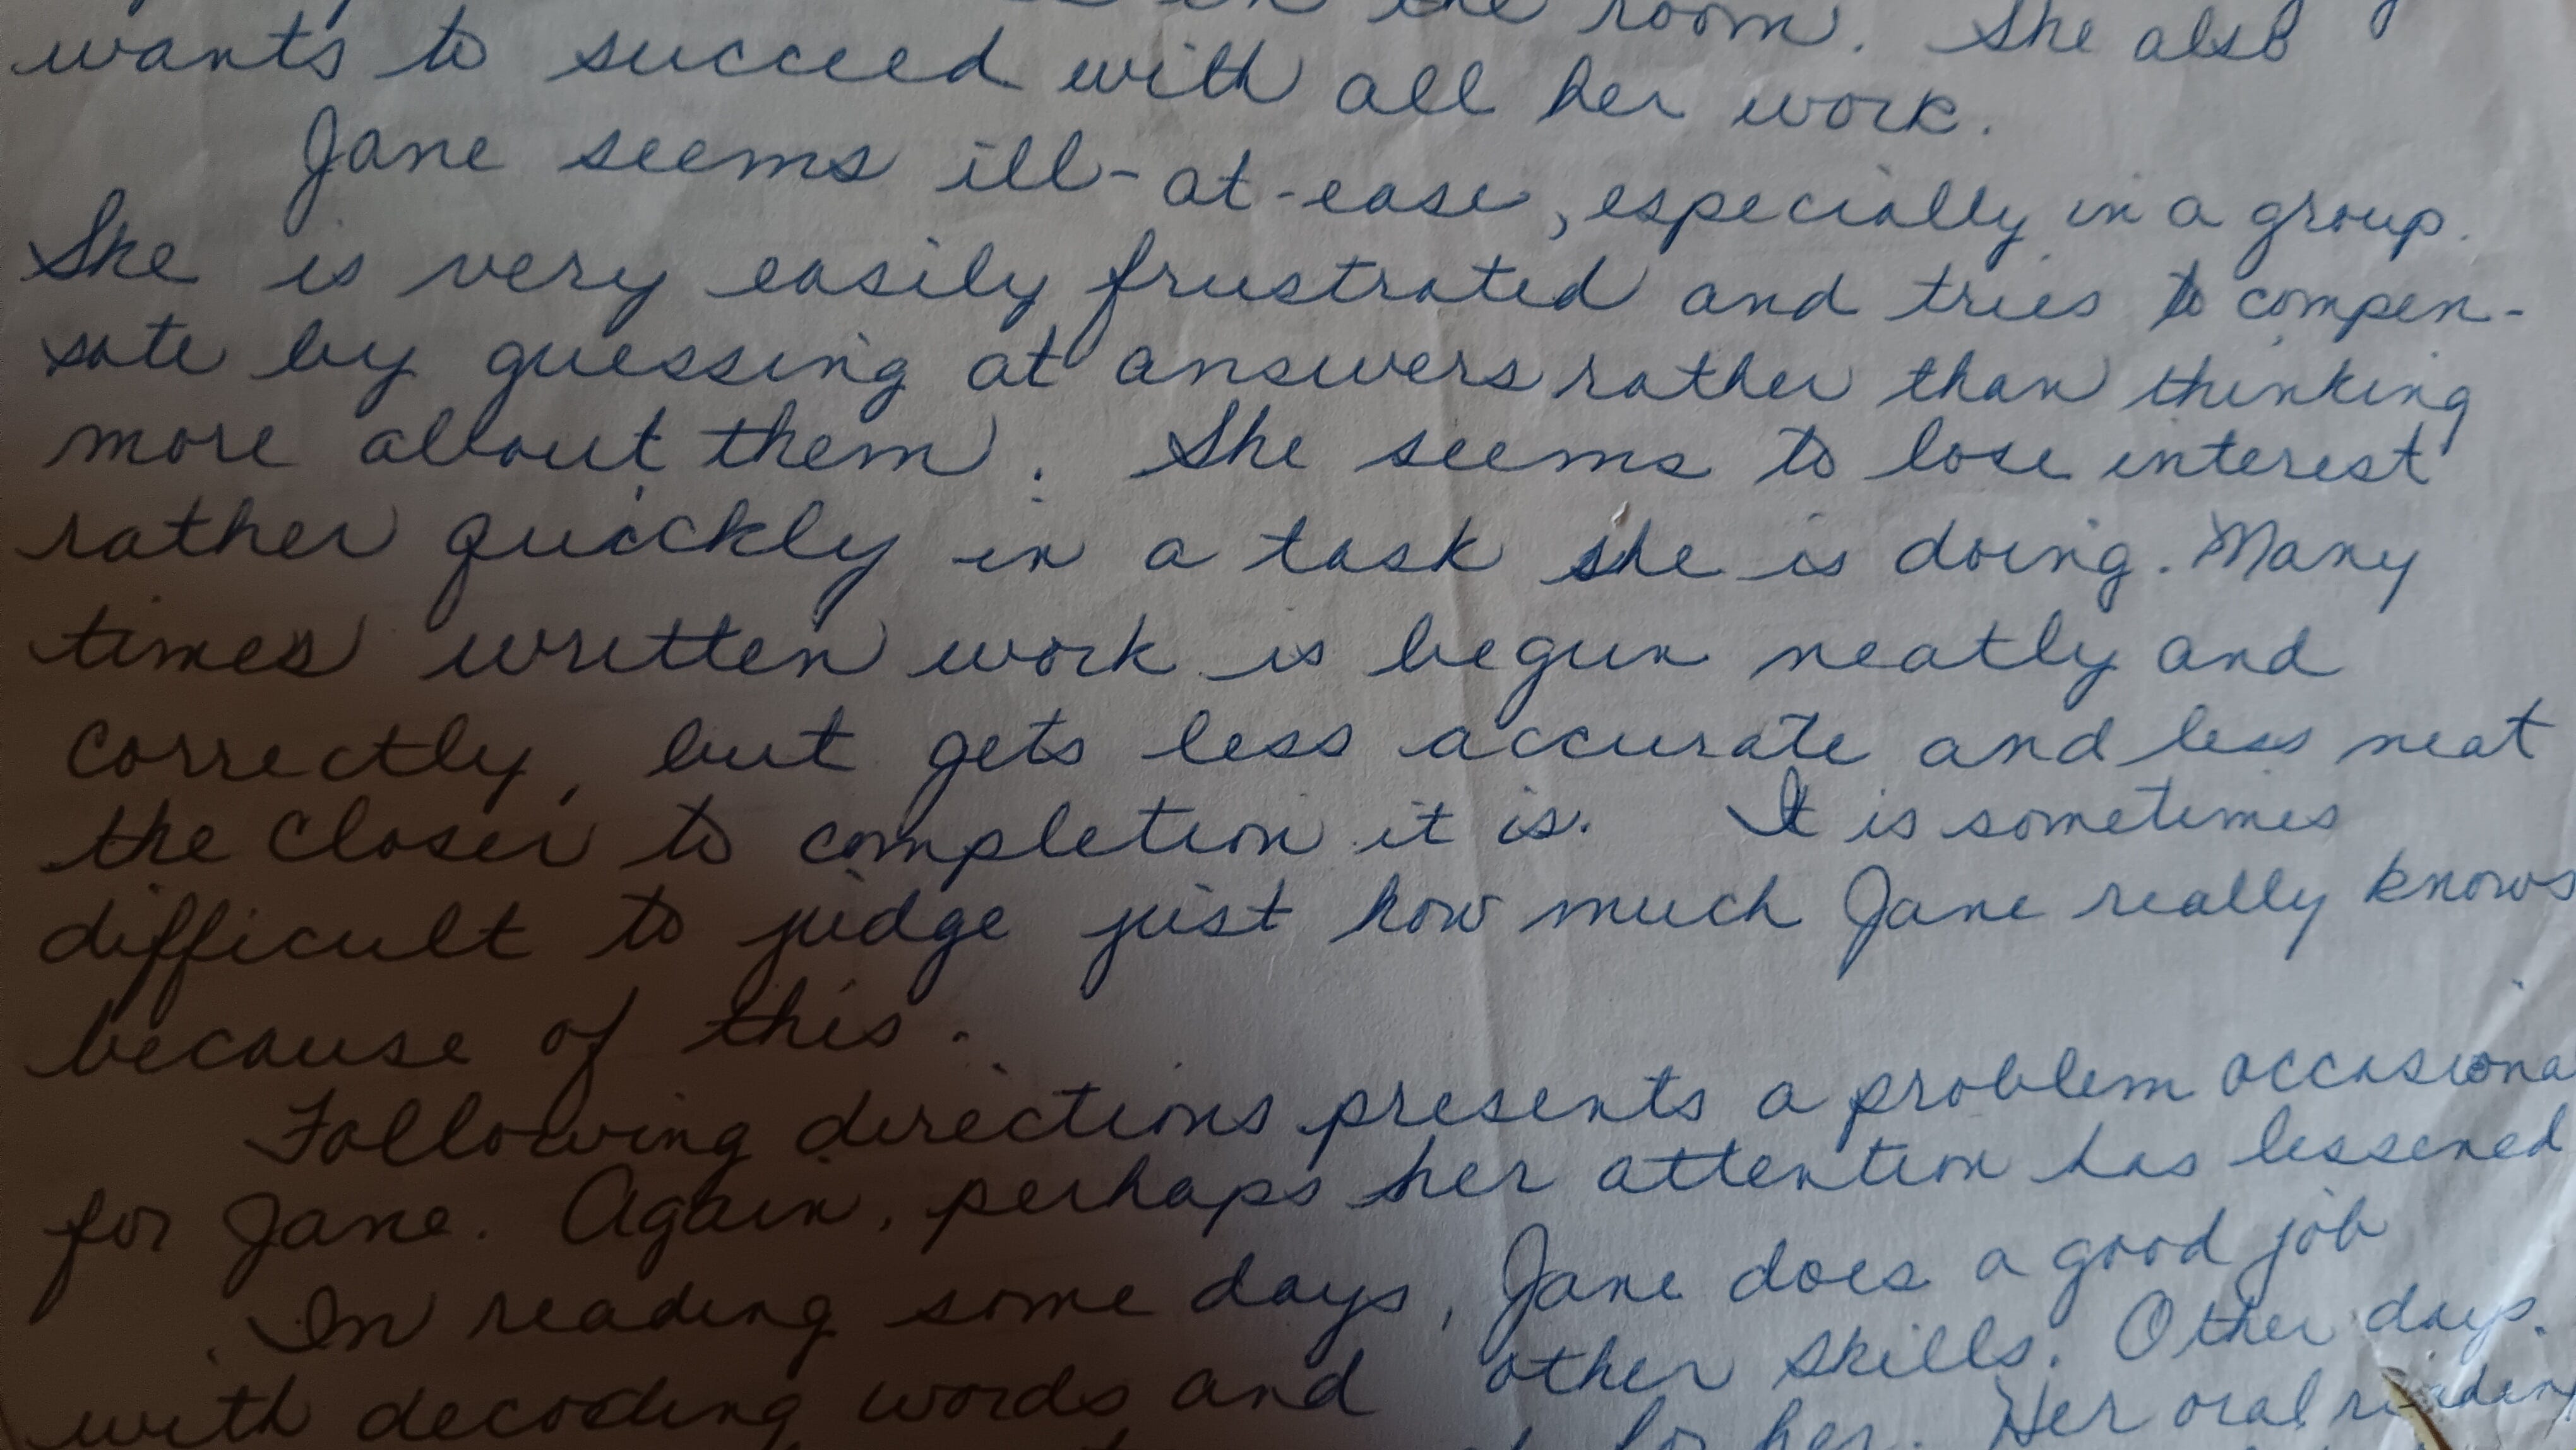 in the room. She also
wants to succeed with all her work.
Jane seems ill-at-ease, especially in a group.
She is very easily frustrated and tries to compen-
sate by guessing at answers rather than thinking
more about them. She seems to lose interest
rather quickly in a task she is doing. Many
times written work is begun neatly and
correctly, but gets less accurate and less neat
the closer to completion it is. It is sometimes
difficult to judge just how much Jane really knows
because of this.
Following directions presents a problem occasiona
for Jane. Again, perhaps her attention has lessened
In reading some days, Jane does a good job
with decoding words and other skills. Other days
for her. Her oral reading